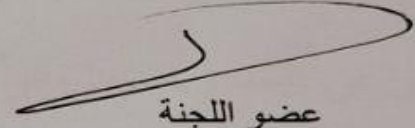 عضو اللجنة